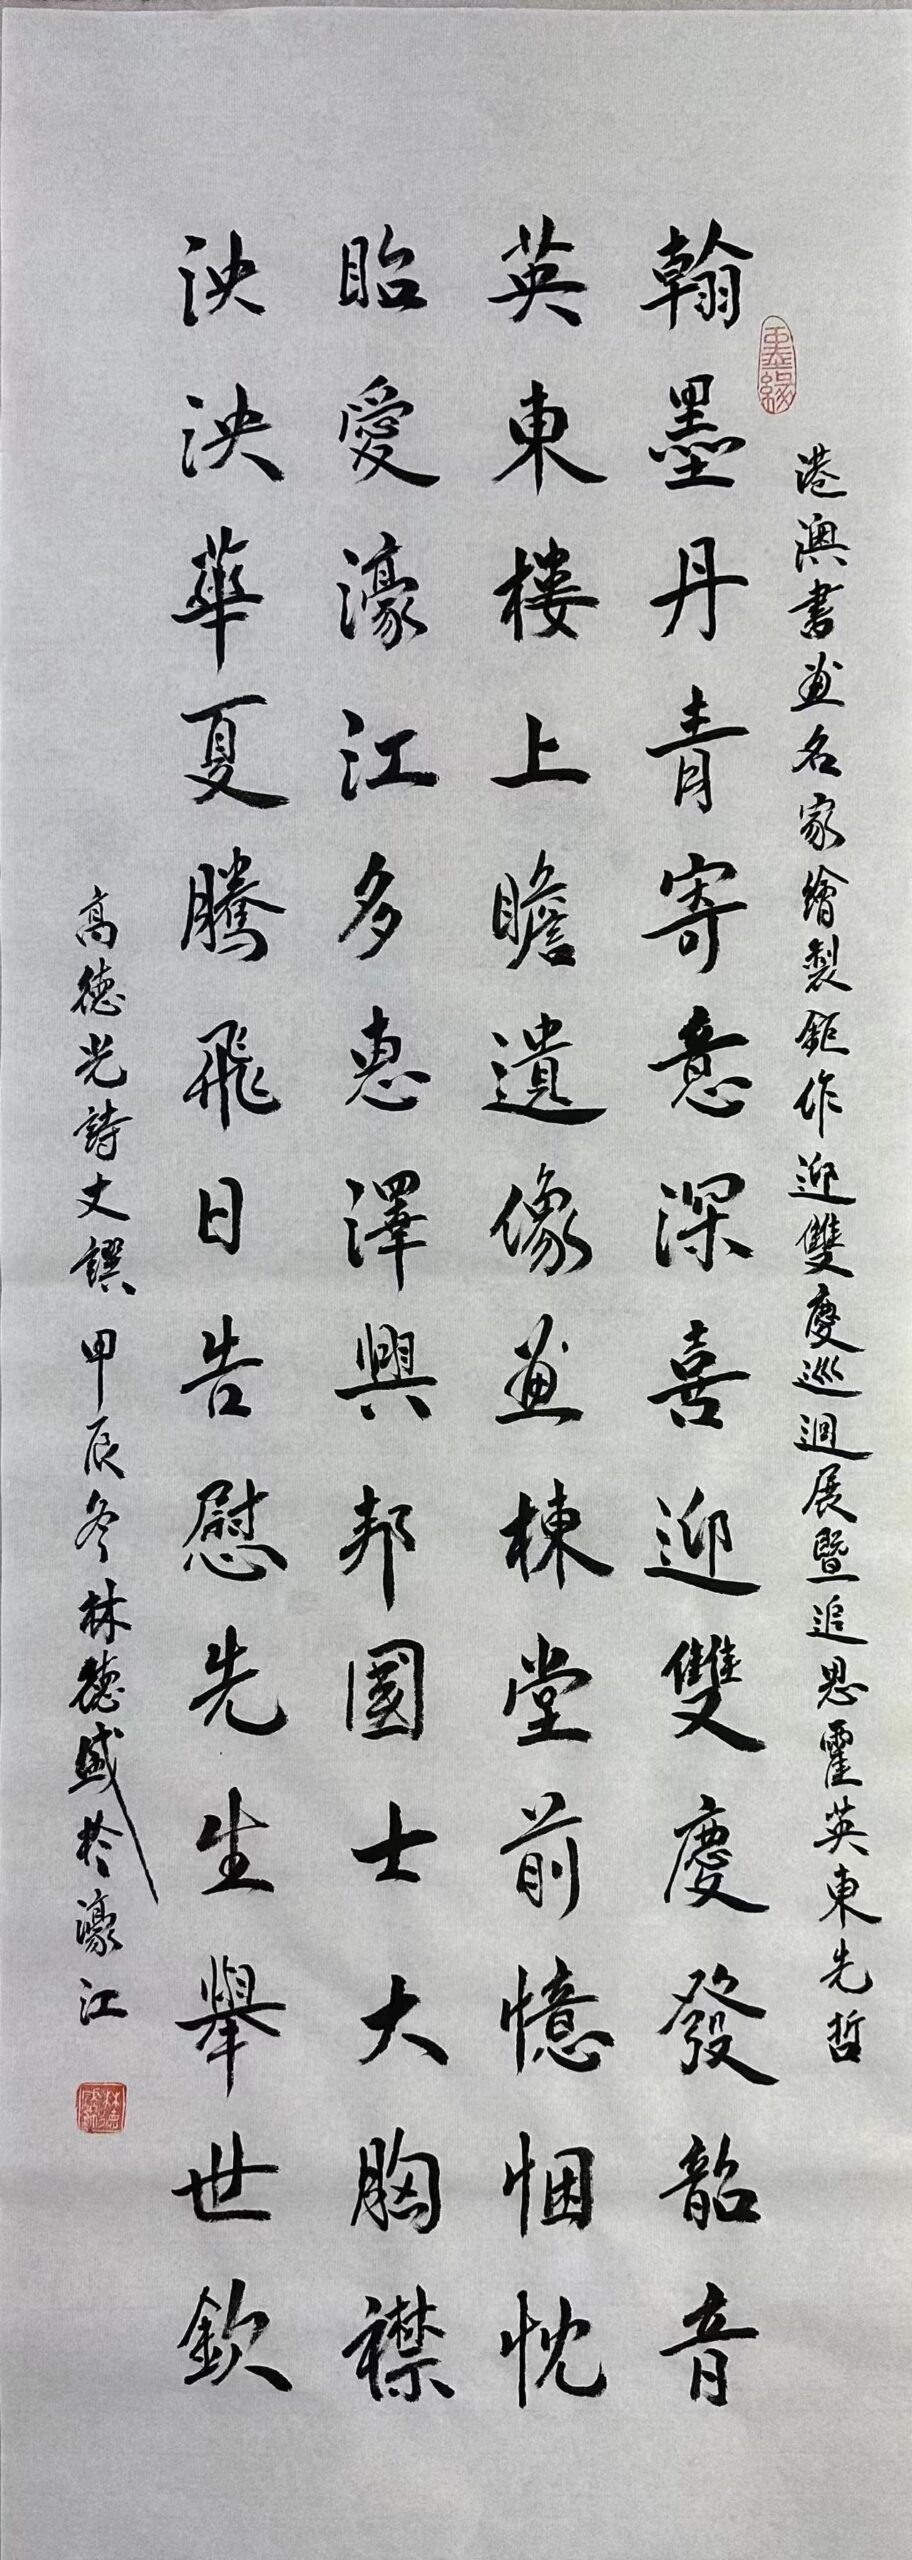 港澳書畫名家繪製鉅作迎雙慶巡迴展暨追思霍英東先哲
翰墨丹青寄意深喜迎雙慶發韶音
英東樓上瞻遺像畫棟堂前憶悃忱
眙愛濠江多惠澤興邦國士大胸襟
泱泱華夏騰飛日告慰先生舉世欽
高德光詩文譔甲辰冬林德盛於濠江
墨緣
林德盛